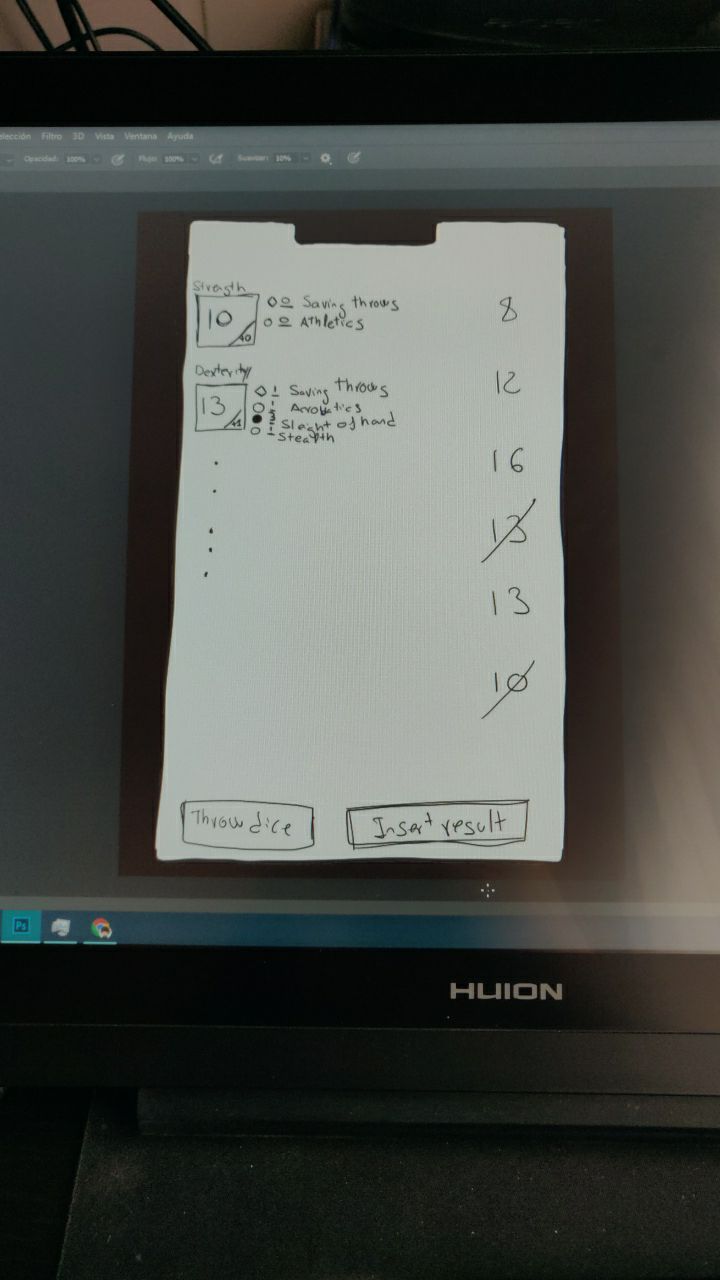 elección Filtro 3D Vista Ventana Ayuda
Opacidad: 100% Flujo: 100% Suavizar: 10%
Strength
10 +0
0 Saving throws
0 Athletics
8
Dexterity
13 +1
1 Saving throws
1 Acrobatics
3 Sleight of hand
1 Stealth
12
16
13
13
10
Throw dice
Insert result
Ps
HUION